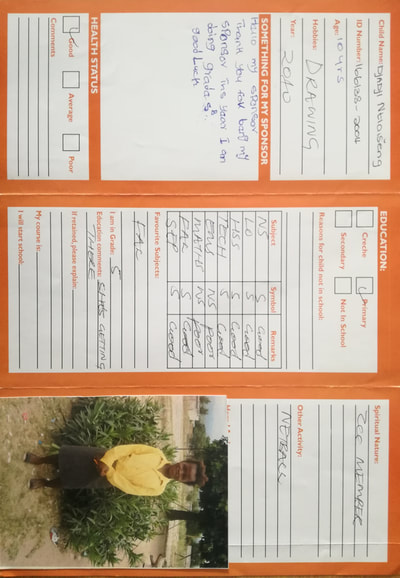 Child Name:
ID Number: 166128-2004
Age: 10 yrs
Hobbies: DRAWING
Year: 2010
SOMETHING FOR MY SPONSOR
Hello my sponsor
Thank you for being my
sponsor this year I am
doing grade 5..
good luck
HEALTH STATUS
Good
Average
Poor
Comments
EDUCATION:
Creche
Primary
Secondary
Not In School
Reasons for child not in school:
Subject Symbol Remarks
NS S Good
LO S Good
HSS S Good
TECH S Good
EMS NS Poor
MATHS NS Poor
EAL S Good
SEP S Good
Favourite Subjects:
EAL
I am in Grade: 5
Education comments: SHE'S GETTING
THERE
If retained, please explain:
My course is:
I will start school:
Spiritual Nature:
ZCC MEMBER
Other Activity:
NETBALL